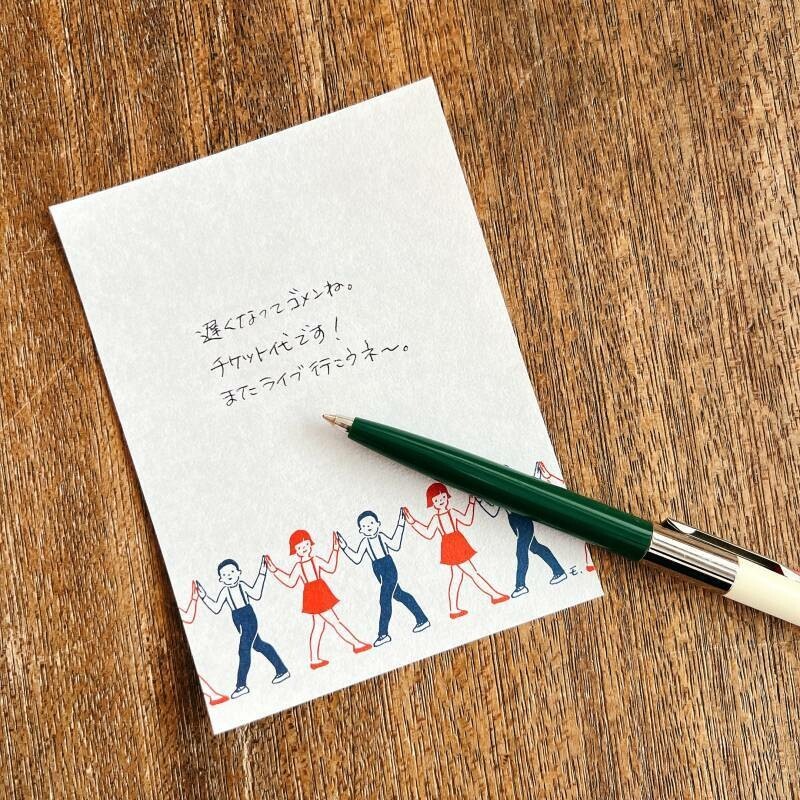 遅くなってゴメンね。
チケット代です!
またライブ行こウネ〜。
モ.